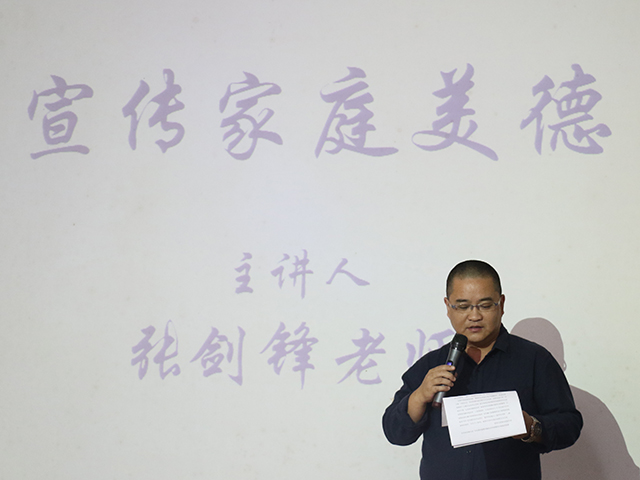 宣传家庭美德
主讲人
张剑锋老师